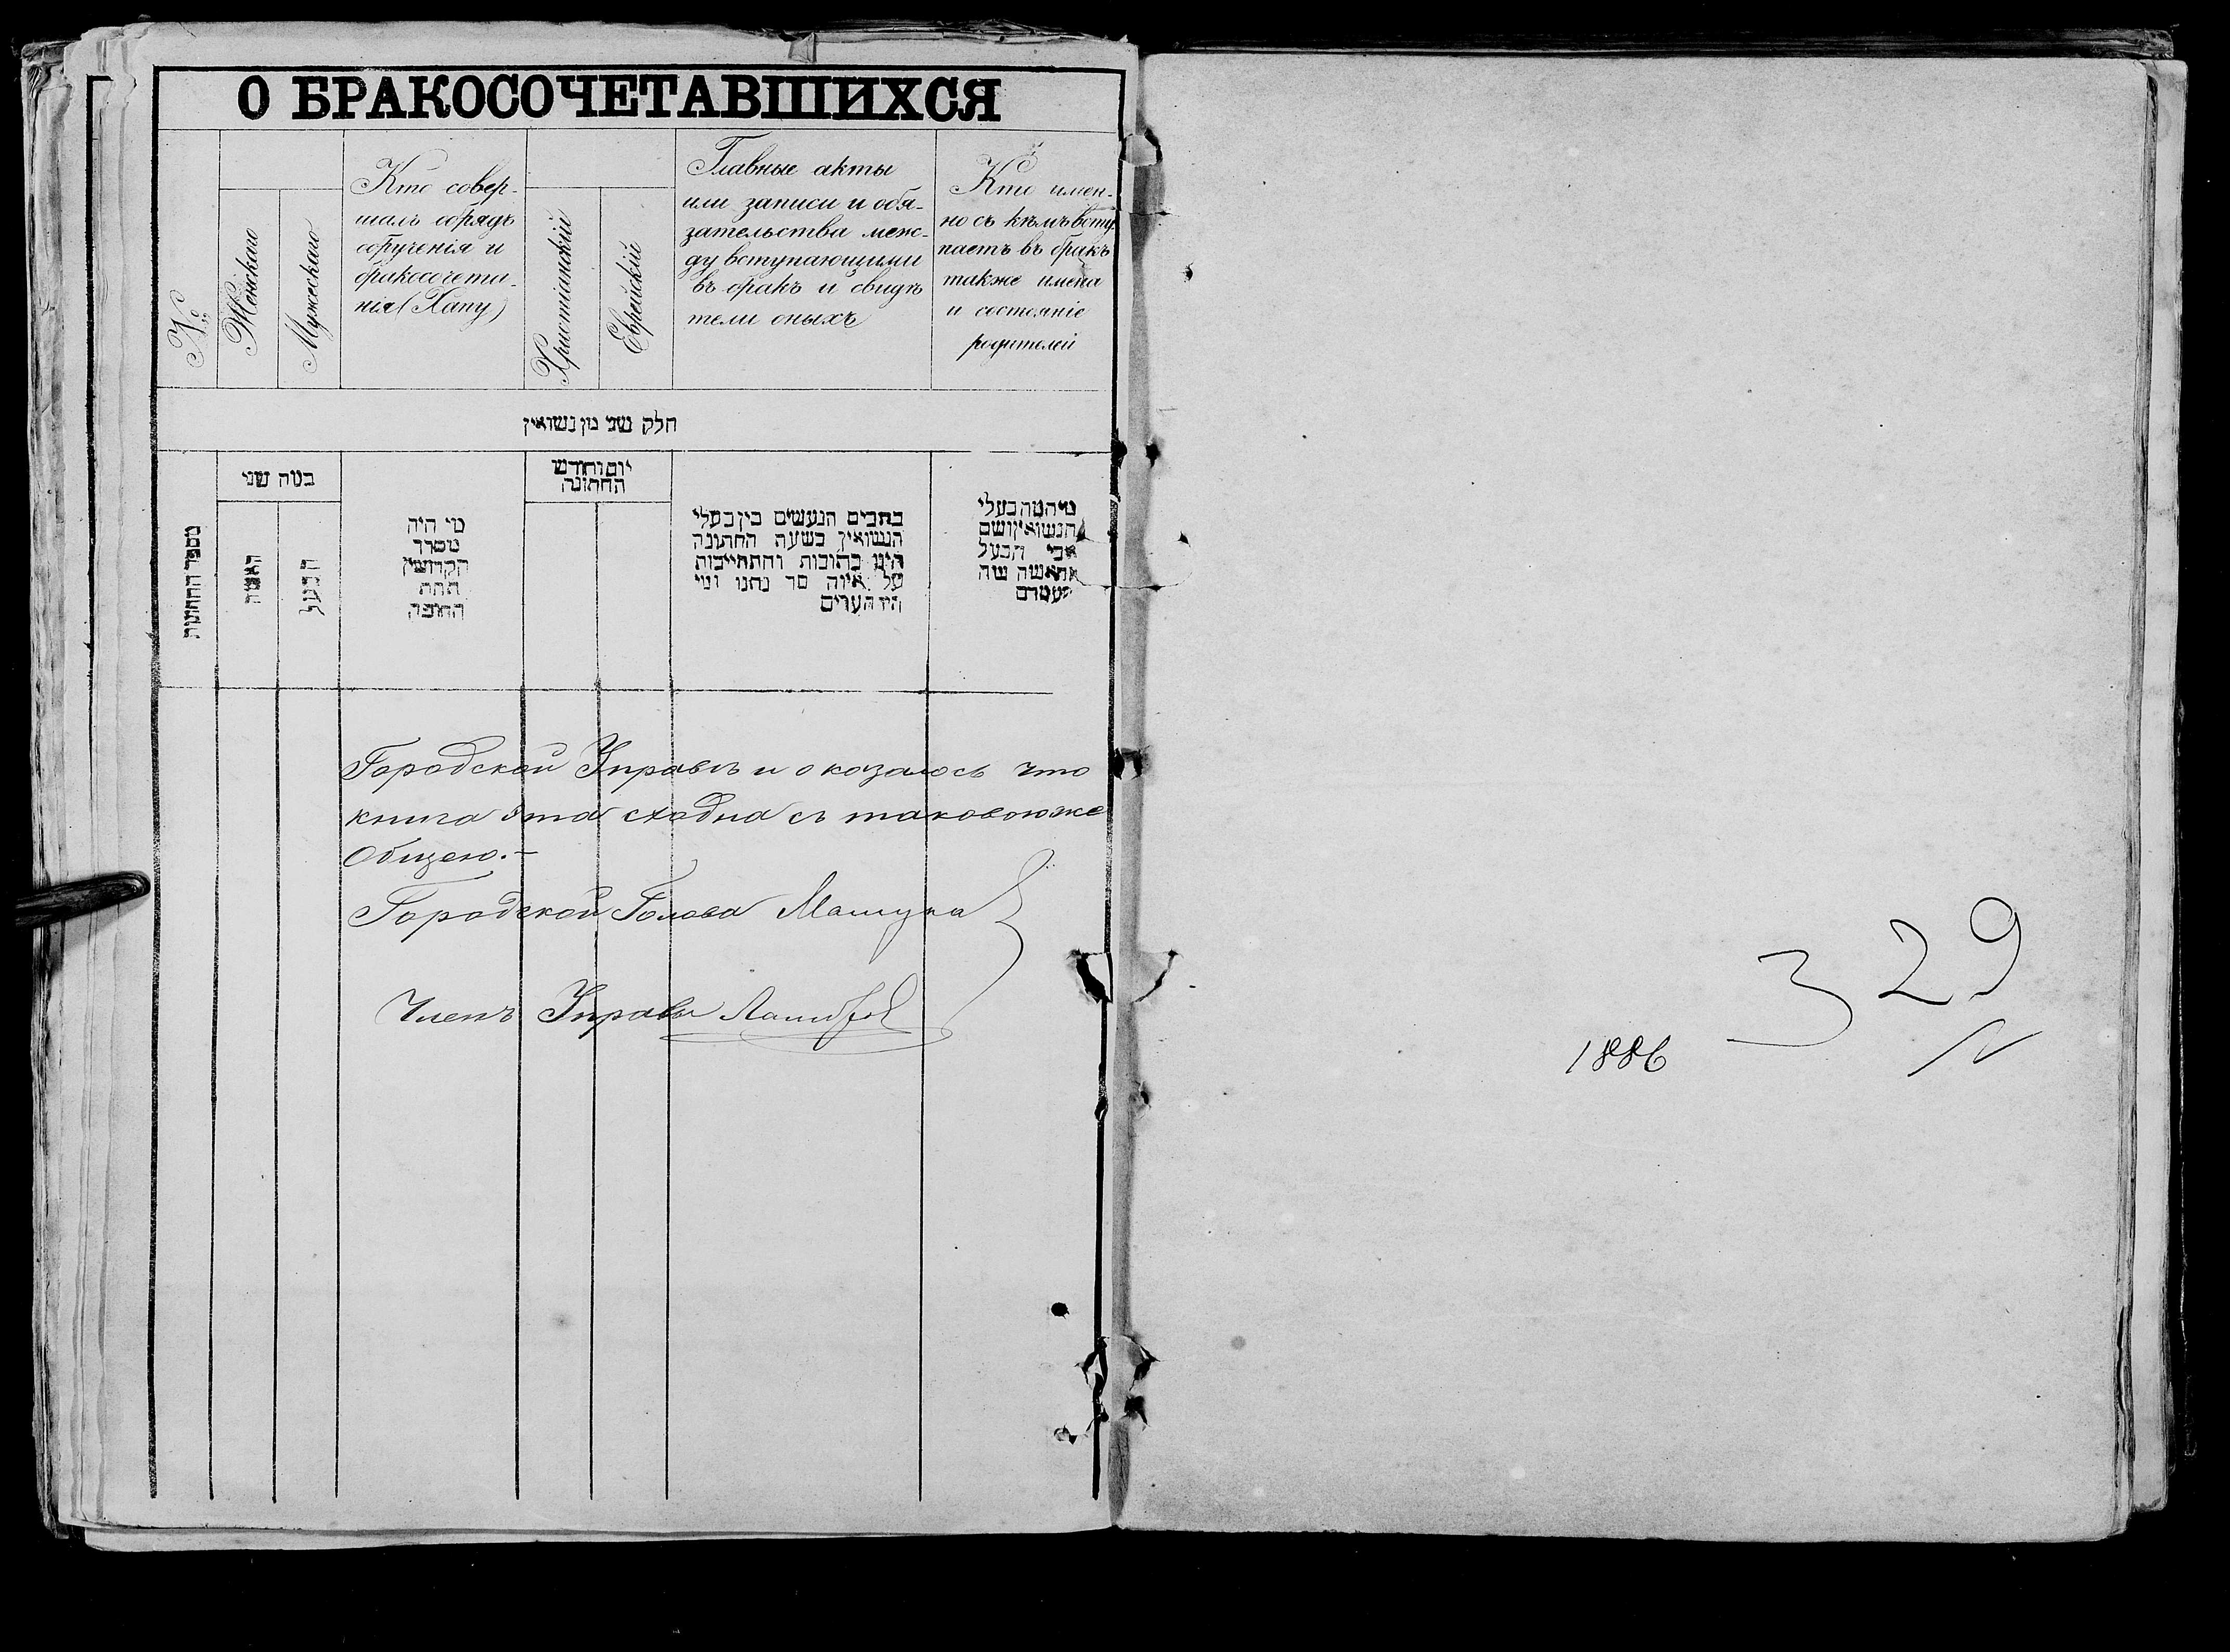 О БРАКОСОЧЕТАВШИХСЯ
№
Женскаго
Мужескаго
Кто совер-
шалъ обрядъ
обрученія и
бракосочета-
нія (Хапу)
Христіанскій
Еврейскій
Главные акты
или записи и обя-
зательства меж-
ду вступающими
въ бракъ и свидѣ
тели оныхъ
Кто имен-
но съ кѣмъ всту
паетъ въ бракъ
также имена
и состояніе
родителей
חלק שני מן נשואין
מספר החתונות
במה שני
האשה
הבעל
מי היה
מסדר
הקדושין
תחת
החופה
יום וחודש
החתונה
כתבים הנעשים בין בעלי
הנשואין בשעה החתונה
היינו כתובות והתחייבות
על איזה סך נתנו ומי
היו העדים
מי המה בעלי
הנשואין ושם
אבי הבעל
והאשה
Городской Управѣ и оказалось что
книга эта сходна съ таковою же
Общею.-
Городской Голова
Членъ Управы
329
1886